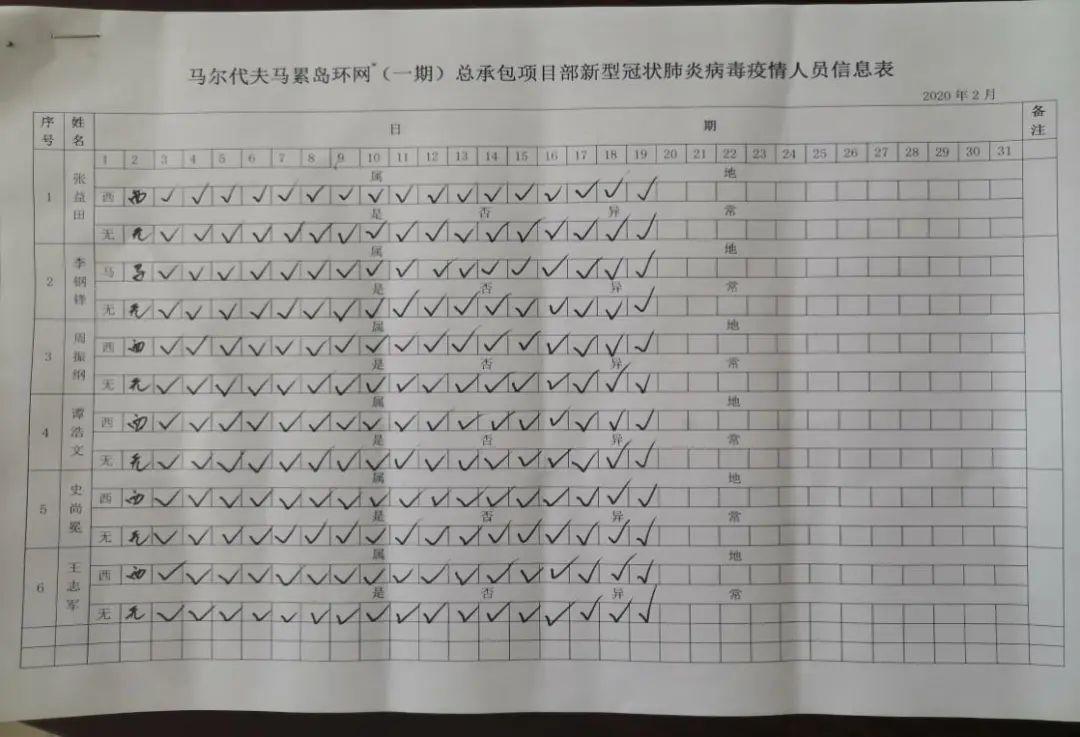 马尔代夫马累岛环网"（一期）总承包项目部新型冠状肺炎病毒疫情人员信息表
2020 年 2 月
序号 姓名 日 期 备注
1 2 3 4 5 6 7 8 9 10 11 12 13 14 15 16 17 18 19 20 21 22 23 24 25 26 27 28 29 30 31
属 地
1 张益田 西 西 ✓ ✓ ✓ ✓ ✓ ✓ ✓ ✓ ✓ ✓ ✓ ✓ ✓ ✓ ✓ ✓ ✓
是 否 异 常
无 无 ✓ ✓ ✓ ✓ ✓ ✓ ✓ ✓ ✓ ✓ ✓ ✓ ✓ ✓ ✓ ✓ ✓
属 地
2 李钢锋 马 马 ✓ ✓ ✓ ✓ ✓ ✓ ✓ ✓ ✓ ✓ ✓ ✓ ✓ ✓ ✓ ✓ ✓
是 否 异 常
无 无 ✓ ✓ ✓ ✓ ✓ ✓ ✓ ✓ ✓ ✓ ✓ ✓ ✓ ✓ ✓ ✓ ✓
属 地
3 周振纲 西 西 ✓ ✓ ✓ ✓ ✓ ✓ ✓ ✓ ✓ ✓ ✓ ✓ ✓ ✓ ✓ ✓ ✓
是 否 异 常
无 无 ✓ ✓ ✓ ✓ ✓ ✓ ✓ ✓ ✓ ✓ ✓ ✓ ✓ ✓ ✓ ✓ ✓
属 地
4 谭浩文 西 西 ✓ ✓ ✓ ✓ ✓ ✓ ✓ ✓ ✓ ✓ ✓ ✓ ✓ ✓ ✓ ✓ ✓
是 否 异 常
无 无 ✓ ✓ ✓ ✓ ✓ ✓ ✓ ✓ ✓ ✓ ✓ ✓ ✓ ✓ ✓ ✓ ✓
属 地
5 史尚冕 西 西 ✓ ✓ ✓ ✓ ✓ ✓ ✓ ✓ ✓ ✓ ✓ ✓ ✓ ✓ ✓ ✓ ✓
是 否 异 常
无 无 ✓ ✓ ✓ ✓ ✓ ✓ ✓ ✓ ✓ ✓ ✓ ✓ ✓ ✓ ✓ ✓ ✓
属 地
6 王志军 西 西 ✓ ✓ ✓ ✓ ✓ ✓ ✓ ✓ ✓ ✓ ✓ ✓ ✓ ✓ ✓ ✓ ✓
是 否 异 常
无 无 ✓ ✓ ✓ ✓ ✓ ✓ ✓ ✓ ✓ ✓ ✓ ✓ ✓ ✓ ✓ ✓ ✓